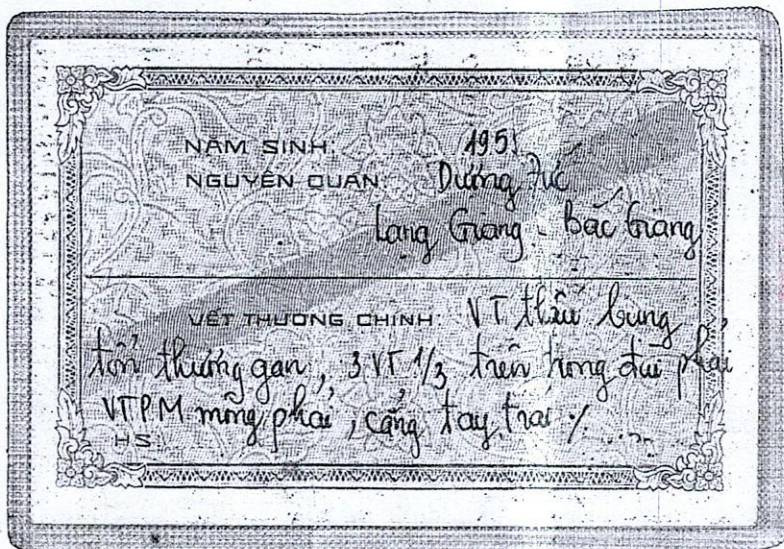 NĂM SINH: 195
NGUYÊN QUÁN: Dương Đức
Lạng Giang - Bắc Giang
VẾT THƯƠNG CHÍNH: VT thấu bụng
tổn thương gan, 3 VT 1/3 trên trong đùi phải
VTPM mông phải, cẳng tay trái ./.
HS: